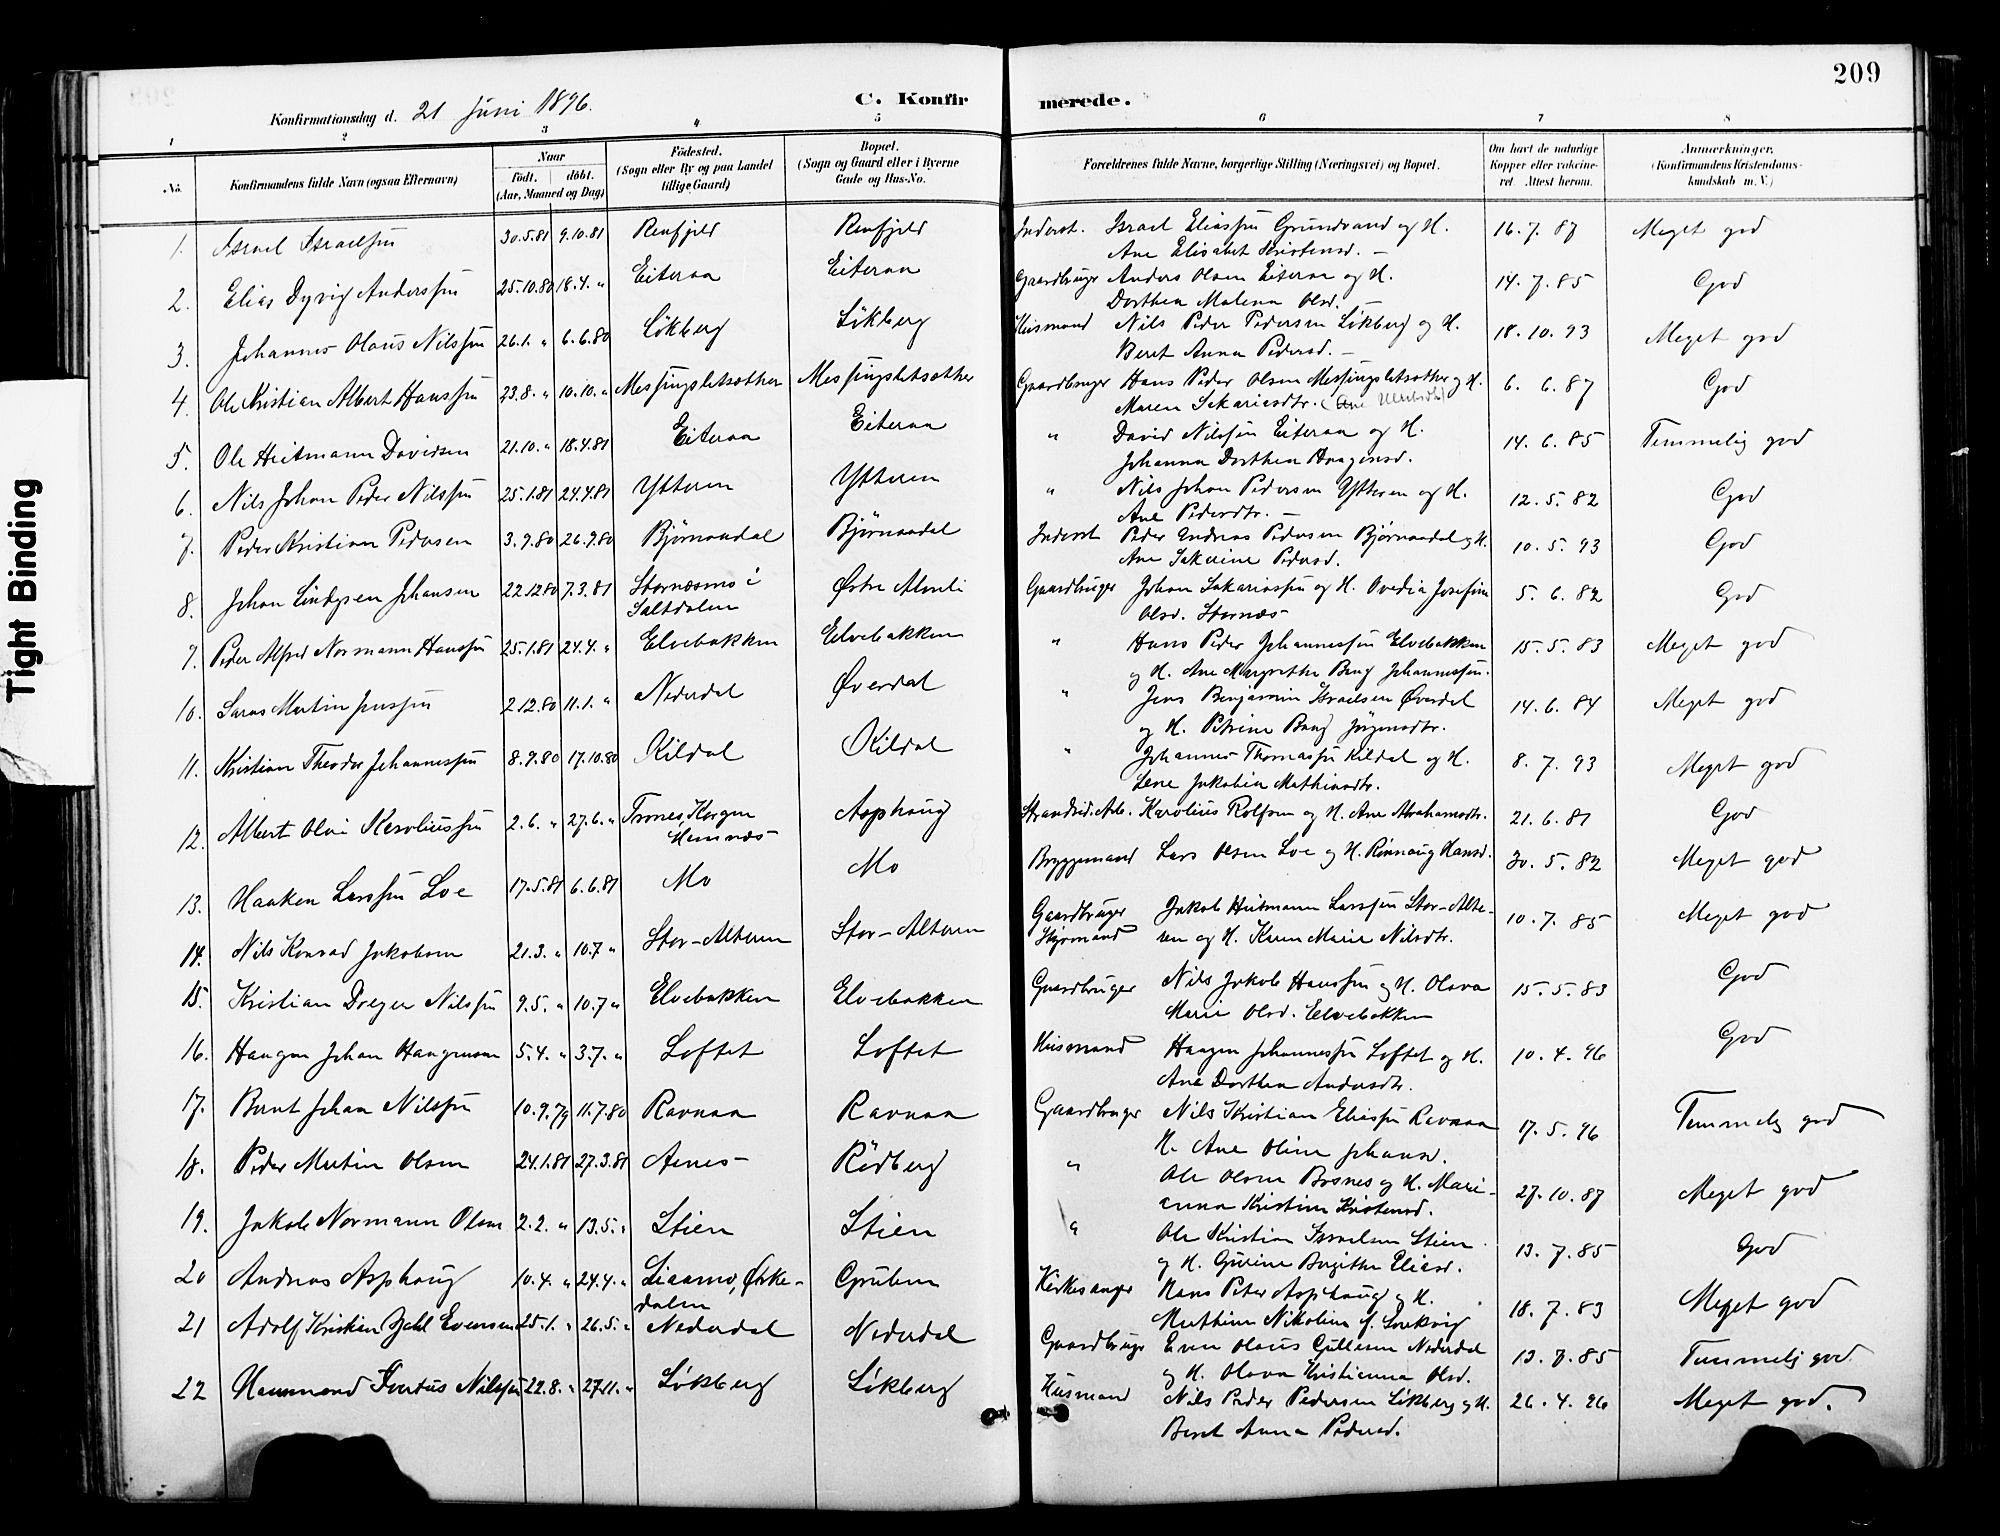 209
Konfirmationsdag d. 21 Juni 1896.
C. Konfirmerede.
1 2 3 4 5 6 7 8
No.
Konfirmandens fulde Navn (ogsaa Efternavn)
Naar
født. døbt.
(Aar, Maaned og Dag)
Fødested.
(Sogn eller By og paa Landet
tillige Gaard)
Bopæl.
(Sogn og Gaard eller i Byerne
Gade og Hus-No.
Forældrenes fulde Navne, borgerlige Stilling (Næringsvei) og Bopæl.
Om havt de naturlige
Kopper eller vakcine-
ret. Attest herom.
Anmærkninger,
(Konfirmandens Kristendoms-
kundskab m. V.)
1. Israel Israelssen 30.5.81 9.10.81 Renfjeld Renfjeld Inderst. Israel Eliassen Grundvand og H. 16.7.87 Meget god
Ane Elisabet Kristensd. –
2. Elias Dyrig Anderssen 25.10.80 18.4. " Eiteraa Eiteraa Gaardbruger Anders Olsen Eiteraa og H. 14.7.85 God
Dorthea Malena Olsd. –
3. Johannes Olaus Nilssen 26.1. " 6.6.80 Løkberg Løkberg Husmand Nils Peder Pedersen Løkberg og H. 18.10.93 Meget god
Beret Anna Pedersd. –
4. Ole Kristian Albert Hanssen 23.8. " 10.10. " Messingsletsæther Messingsletsæther Gaardbruger Hans Peder Olsen Messingsletsæther og H. 6.6.87 God
Maren Sakariasdtr. (Ane
5. Ole Heitmann Davidsen 21.10. " 18.4.81 Eiteraa Eiteraa " David Nilssen Eiteraa og H. 14.6.85 Temmelig god
Johanna Dorthea Haagensd.
6. Nils Johan Peder Nilssen 25.1.81 24.4.81 Ytteren Ytteren " Nils Johan Pedersen Ytteren og H. 12.5.82 God
Ane Pedersdtr. –
7. Peder Kristian Pedersen 3.9.80 26.9.80 Bjørnaadal Bjørnaadal Inderst Peder Andreas Pedersen Bjørnaadal og H. 10.5.93 God
Ane Sakrine Pedersd.
8. Johan Lindgsen Johansen 22.12.80 7.3.81 Stornæsmo i Østre Almli Gaardbruger Johan Sakariassen og H. Ovedia Josefine 5.6.82 God
Saltdalen Olsd. Stornæs
9. Peder Alfred Normann Hanssen 25.1.81 24.4. " Elvebakken Elvebakken " Hans Peder Johannessen Elvebakken 15.5.83 Meget god
og H. Ane Margrethe Bang Johannessen.
10. Saras Martin Jenssen 2.12.80 11.1. " Nederdal Øverdal " Jens Benjamin Israelsen Øverdal 14.6.84 Meget god
og H. Petrine Bang Jørgensdtr.
11. Kristian Theodor Johannessen 8.9.80 17.10.80 Kildal Kildal " Johannes Thomassen Kildal og H. 8.7.93 Meget god
Lene Jakobia Mathiasdtr.
12. Albert Olai Karoliussen 2.6. " 27.6. " Trones, Korgen Asphaug Strandsid. Arb. Karolius Rolfsen og H. Ane Abrahamsdtr. 21.6.81 God
Hemnæs
13. Haaken Larssen Loe 17.5.81 6.6.81 Mo Mo Bryggemand Lars Olsen Loe og H. Rønnaug Hansd. 30.5.82 Meget god
14. Nils Konrad Jakobsen 21.3. " 10.7 " Stor-Alteren Stor-Alteren Gaardbruger Jakob Heitmann Larssen Stor-Alte- 10.7.85 Meget god
Styrmand ren og H. Karen Marie Nilsdtr.
15. Kristian Dreyer Nilssen 9.5. " 10.7 " Elvebakken Elvebakken Gaardbruger Nils Jakob Hanssen og H. Olava 15.5.83 God
Marie Olsd. Elvebakken
16. Haagen Johan Haagensen 5.4. " 3.7. " Loftet Loftet Husmand Haagen Johannessen Loftet og H. 10.4.96 God
Ane Dorthea Andersdtr.
17. Bernt Johan Nilssen 10.9.79 11.7.80 Ravnaa Ravnaa Gaardbruger Nils Kristian Eliassen Ravnaa 17.5.96 Temmelig god
H. Ane Oline Johansd.
18. Peder Martin Olsen 24.1.81 27.3.81 Aenes Rødberg " Ole Olsen Bosnes og H. Mari- 27.10.87 Meget god
anna Kristine Kristensd.
19. Jakob Normann Olsen 2.2. " 13.5. " Stien Stien " Ole Kristian Israelsen Stien 13.7.85 God
og H. Gurine Birgitte Eliasd.
20 Andreas Asphaug 10.4. " 24.4. " Liaamo, Ørke- Gruben Kirkesanger Hans Peter Asphaug og H. 18.7.83 Meget god
dalen Mathine Nikoline f. Lorkvig
21 Adolf Kristian Dahl Evensen 25.1. " 26.5. " Nederdal Nederdal Gaardbruger Even Olaus Gullesen Nederdal 13.7.85 Temmelig god.
og H. Olava Kristianna Olsd.
22 Hammond Sivertus Nilssen 22.8. " 27.11. " Løkberg Løkberg Husmand Nils Peder Pedersen Løkberg og H. 26.4.96 Meget god.
Beret Anna Pedersd.
Tight Binding